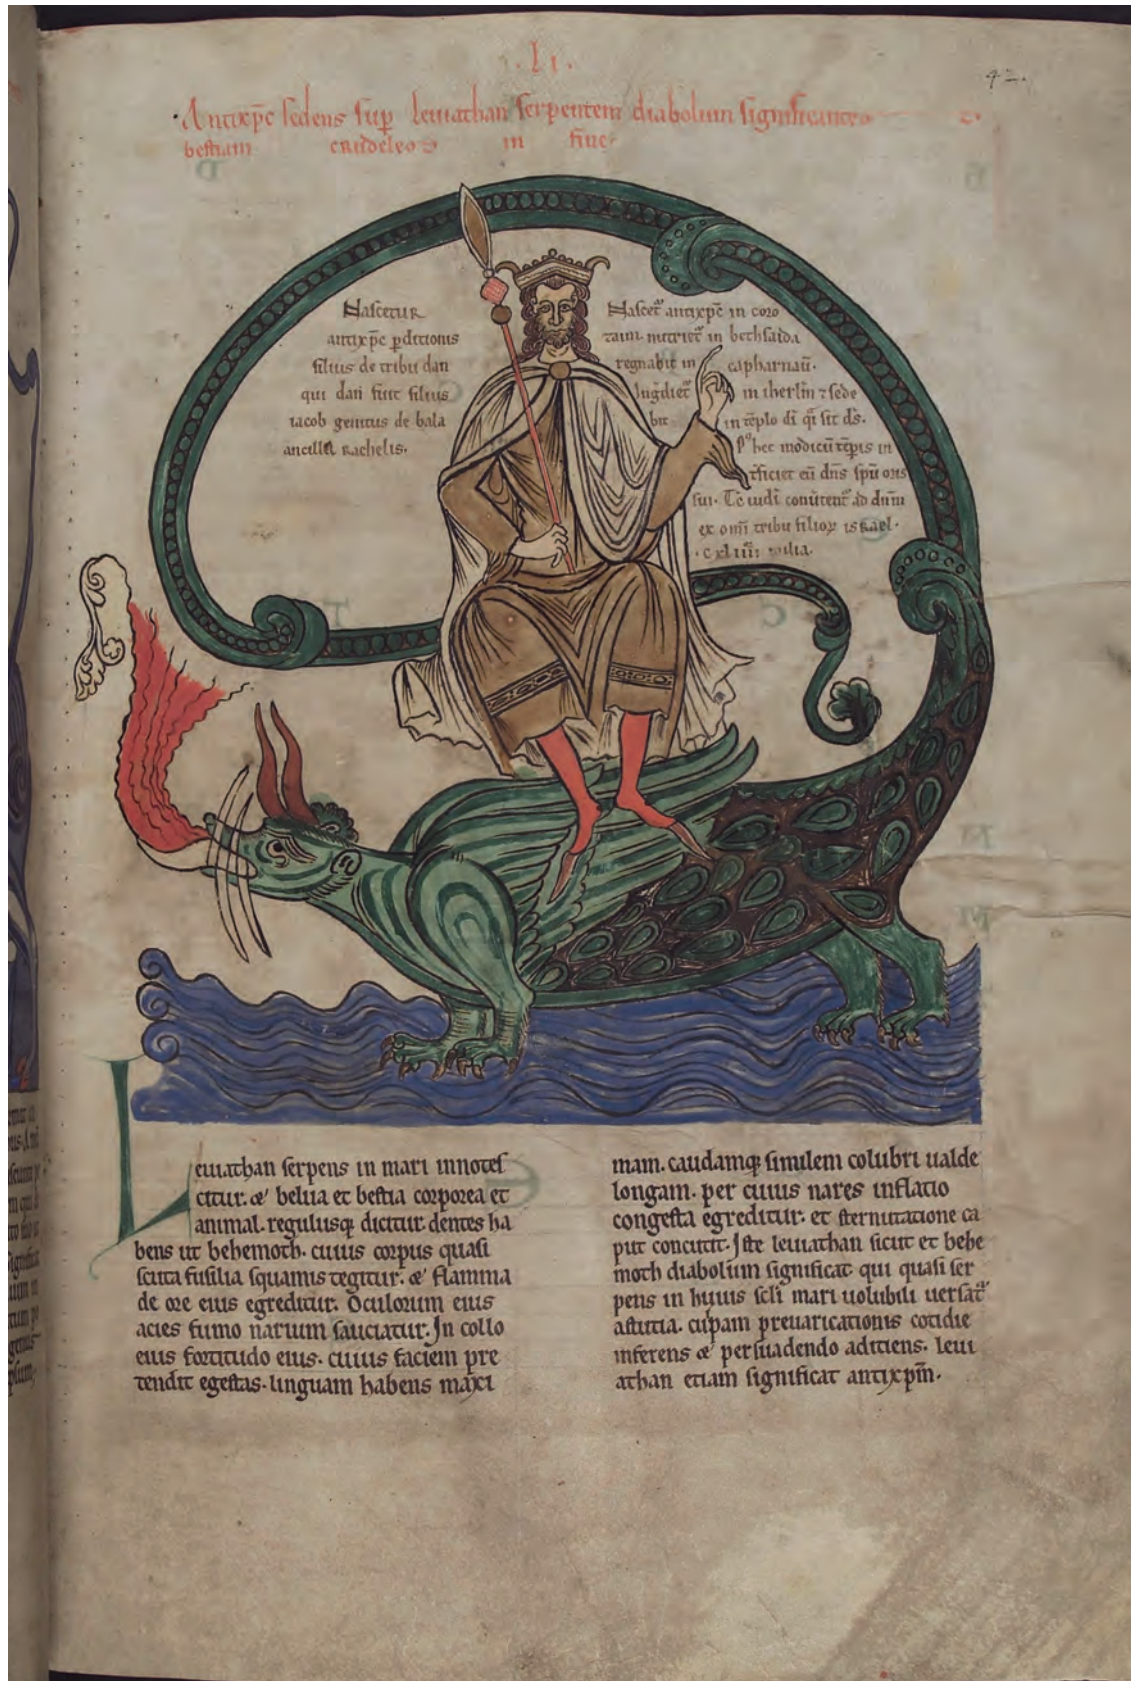 .LI.
42.
Antixp̄c sedens sup̄ leuiathan serpentem diabolum significante
bestiam crudeleo in fine
Nascetur
antixp̄c p̄ditionis
filius de tribu dan
qui dan fuit filius
iacob genitus de bala
ancilla rachelis.
Nascet᷑ antixp̄c in coro
zaim. nutriet᷑ in bethsaida
regnabit in capharnaū.
in iherlm̄ ⁊ sede
bit in tēplo dī q̄i sit ds̄.
hec modicū tēpis in
t̄ficiet eū dn̄s spū oris
sui. Tc̄ iudi conūtent᷑ ad dn̄m
ex om̄i tribu filioꝝ israel.
.cxliiii milia.
Leuiathan serpens in mari innotes
citur. & belua et bestia corporea et
animal. regulusq; dicitur. dentes ha
bens ut behemoth. cuius corpus quasi
scuta fusilia squamis tegitur. & flamma
de ore eius egreditur. Oculorum eius
acies fumo narium sauciatur. In collo
eius fortitudo eius. cuius faciem pre
tendit egestas. linguam habens maxi
mam. caudamq; similem colubri ualde
longam. per cuius nares inflatio
congesta egreditur. et sternutatione ca
put concutit. Iste leuiathan sicut et behe
moth diabolum significat qui quasi ser
pens in huius scl̄i mari uolubili uersat᷑
astutia. culpam preuaricationis cotidie
inferens & persuadendo aditiens. leui
athan etiam significat antixp̄m.